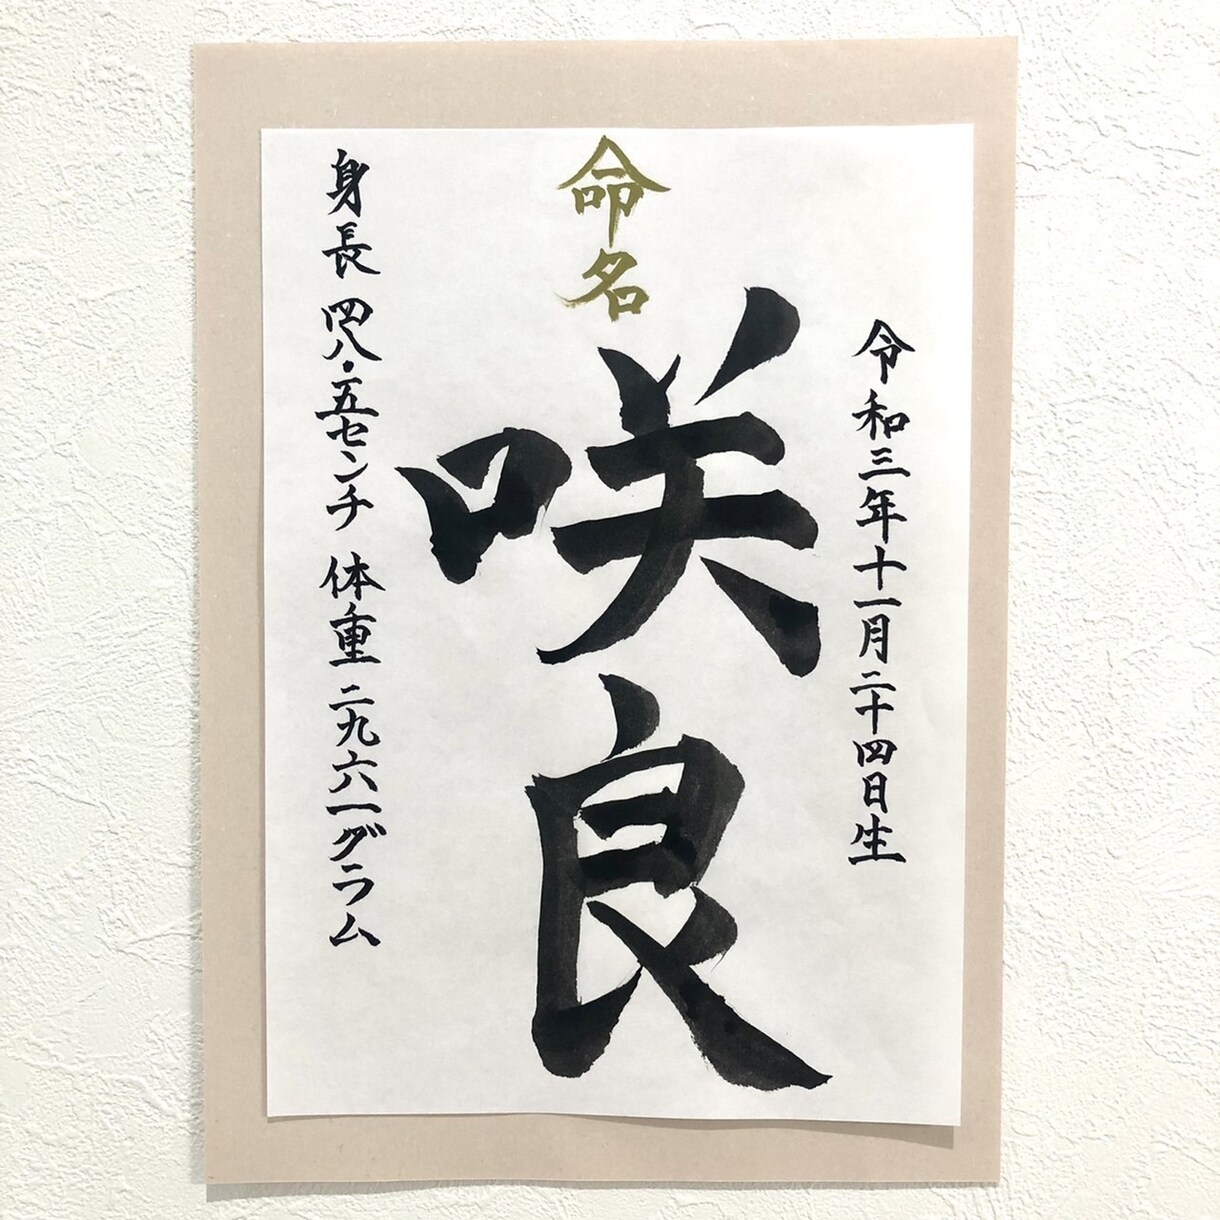 令和三年十一月二十四日生
命名
咲良
身長 四八・五センチ 体重 二九六一グラム